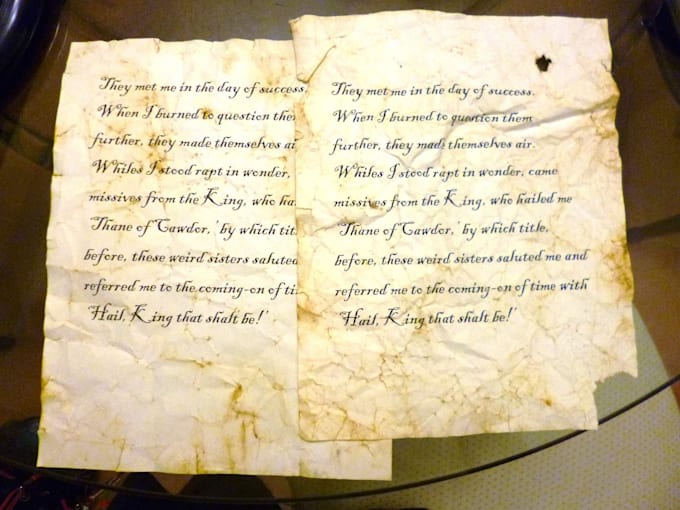 They met me in the day of success.
When I burned to question the
further, they made themselves ai
Whiles I stood rapt in wonder,
missives from the King, who ha
'Thane of Cawdor,' by which tit
before, these weird sisters saluted
referred me to the coming-on of ti
'Hail, King that shalt be!'
They met me in the day of success.
When I burned to question them
further, they made themselves air.
Whiles I stood rapt in wonder, came
missives from the King, who hailed me
'Thane of Cawdor,' by which title,
before, these weird sisters saluted me and
referred me to the coming-on of time with
'Hail, King that shalt be!'